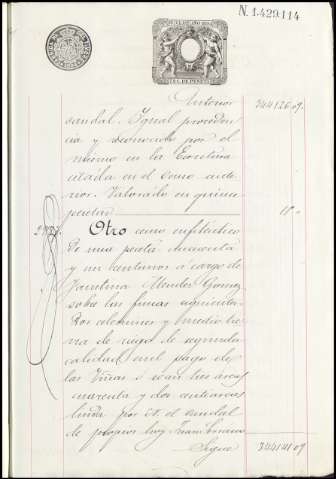 N. 1.429.114
Anterior 344126 09
caudal. Igual proceden
cia y reconocido por el
mismo en la Escritura
citada en el censo ante
rior. Valorado en quince
pesetas 15 "
Otro censo enfitéutico
de una peseta cuarenta
y un centimos á cargo de
Mendez Gomez
sobre las fincas siguientes
Dos celemines y medio tier
ra de riego de segunda
calidad en el pago de
las Viñas ó sean tres áreas
cuarenta y dos centiáreas
linda por N. el caudal
de propios hoy Francisco
Sigue 344141 09